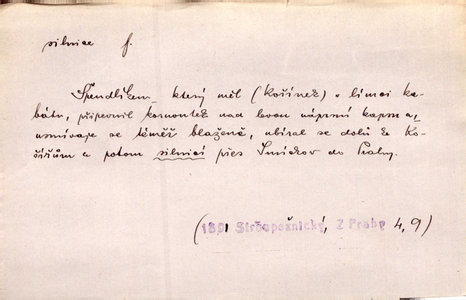 silnice f.
Špendlíkem, který měl (Kořínek) v límci ka-
bátu, připevnil kornoutek nad levou náprsní kapsu a,
usmívaje se téměř blaženě, ubíral se dolů ke Ko-
šířům a potom silnicí přes Smíchov do Prahy.
(1891 Stroupežnický, Z Prahy 4,9)